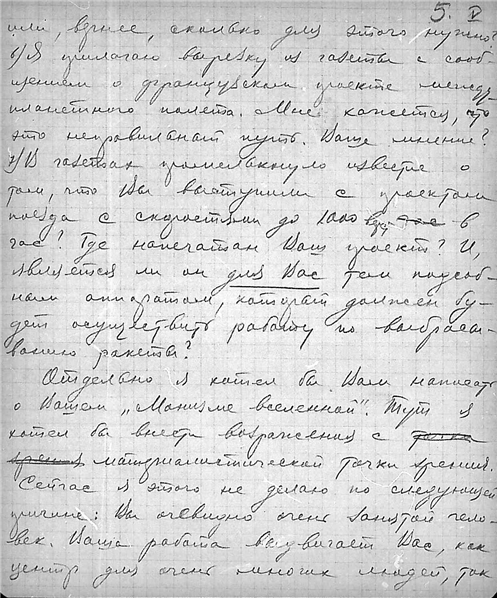 5. V
или, вернее, сколько для этого нужно?
6/ Я прилагаю вырезку из газеты с сооб-
щением о французском проекте между
планетного полета. Мне кажется, что
это неправильный путь. Ваше мнение?
7/ В газетах промелькнуло известие о
том, что Вы выступили с проектом
поезда с скоростями до 1000 в
час? Где напечатан Ваш проект? И,
является ли он для Вас тем подсоб-
ным аппаратом, который должен бу-
дет осуществить работу по выбрасы-
ванию ракеты?
Отдельно я хотел бы Вам написать
о Вашем „Монизме вселенной". Тут я
хотел бы внести возражения с точки
зрения материалистической точки зрения.
Сейчас я этого не делаю по следующей
причине: Вы очевидно очень занятой чело-
век. Ваша работа выдвигает Вас, как
центр для очень многих людей, так